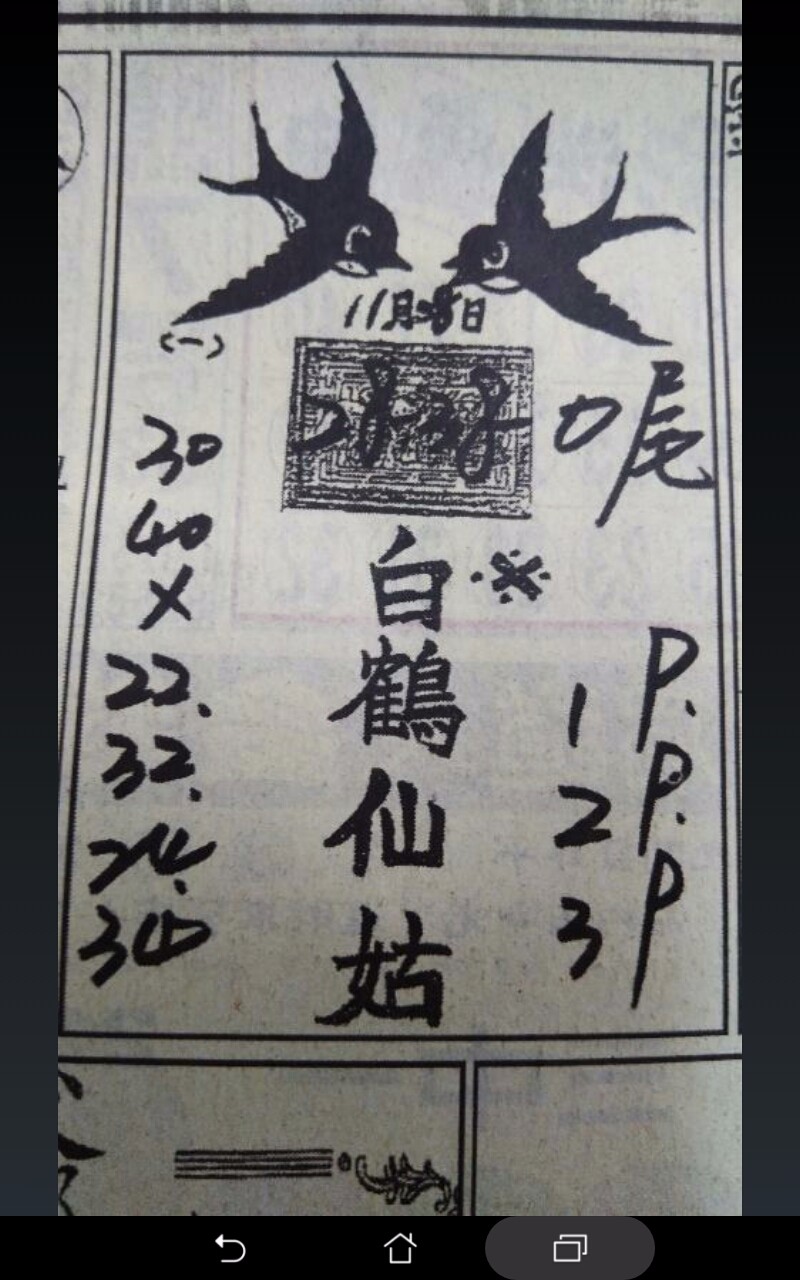 11月28日
(一)
0尾
30
40
×
22.
32.
24.
34
白
鶴
仙
姑
1 P.
2 P.
3 P